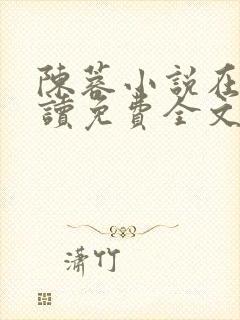 陳蓉小說在
讀免費全文
瀟竹